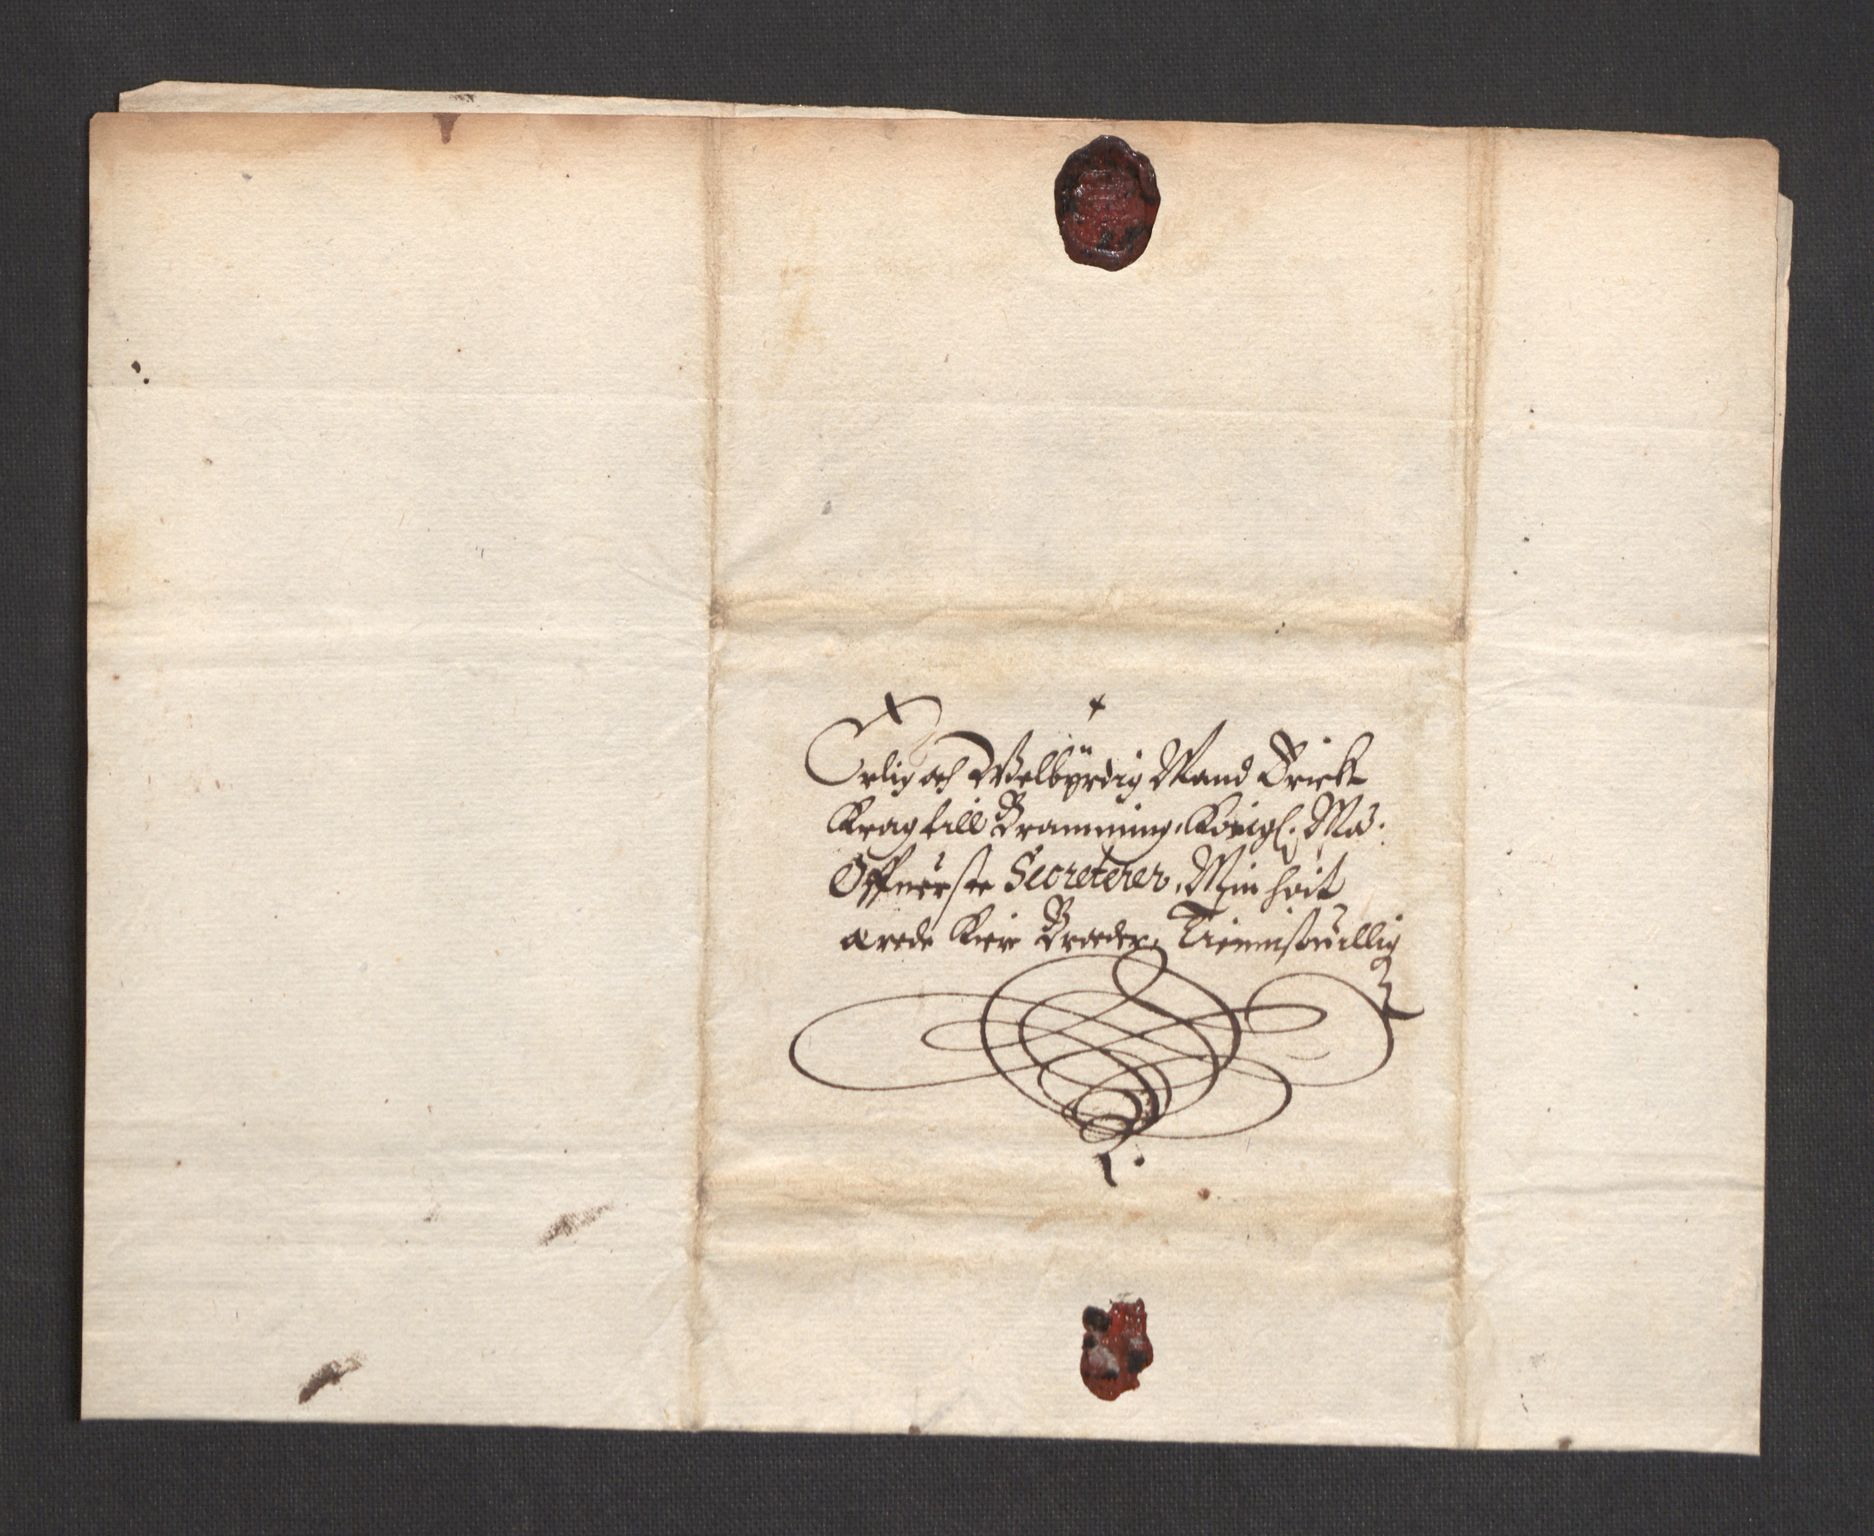 Erlig och Welbÿrdig Mand Erich
Krag till Bramming, Königl: Ma:
Öffuerste Secreterer, Min høit
ærede Kiere Broeder, Tienistuillig